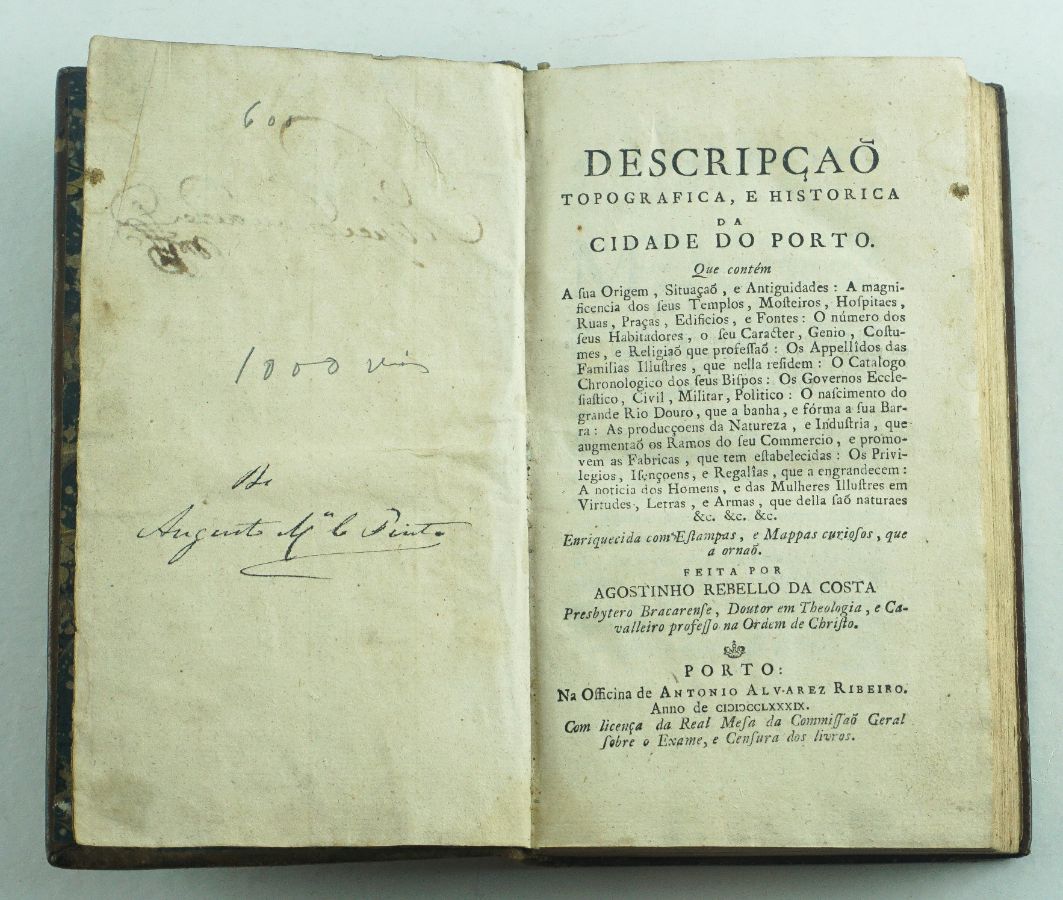 600
1000 reis
De
Augusto Mª C Pinto
DESCRIPÇAÕ
TOPOGRAFICA, E HISTORICA
DA
CIDADE DO PORTO.
Que contém
A ſua Origem, Situaçaõ, e Antiguidades: A magni-
ficencia dos ſeus Templos, Moſteiros, Hoſpitaes,
Ruas, Praças, Edificios, e Fontes: O número dos
ſeus Habitadores, o ſeu Caracter, Genio, Coſtu-
mes, e Religiaõ que profeſſaõ: Os Appellidos das
Familias Illuſtres, que nella reſidem: O Catalogo
Chronologico dos ſeus Biſpos: Os Governos Eccle-
ſiaſtico, Civil, Militar, Politico: O naſcimento do
grande Rio Douro, que a banha, e fórma a ſua Bar-
ra: As producçoens da Natureza, e Induſtria, que
augmentaõ os Ramos do ſeu Commercio, e promo-
vem as Fabricas, que tem eſtabelecidas: Os Privi-
legios, Iſençoens, e Regalîas, que a engrandecem:
A noticia dos Homens, e das Mulheres Illuſtres em
Virtudes, Letras, e Armas, que della ſaõ naturaes
&c. &c. &c.
Enriquecida com Eſtampas, e Mappas curioſos, que
a ornaõ.
FEITA POR
AGOSTINHO REBELLO DA COSTA
Presbytero Bracarenſe, Doutor em Theologia, e Ca-
valleiro profeſſo na Ordem de Chriſto.
PORTO:
Na Officina de ANTONIO ALVAREZ RIBEIRO.
Anno de CIƆIƆCCLXXXIX.
Com licença da Real Meſa da Commiſſaõ Geral
ſobre o Exame, e Cenſura dos livros.